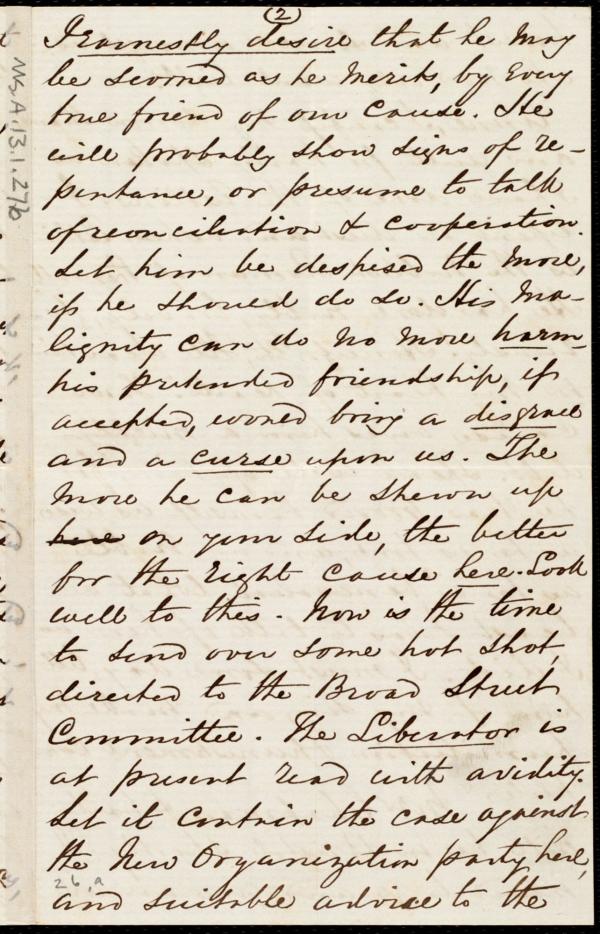 (2)
I earnestly desire that he may
be scorned as he merits, by every
true friend of our cause. He
will probably show signs of re-
pentance, or presume to talk
of reconciliation & cooperation.
Let him be despised the more,
if he should do so. His ma-
lignity can do no more harm
his pretended friendship, if
accepted, would bring a disgrace
and a curse upon us. The
more he can be shewn up
here on your side, the better
for the right cause here. Look
well to this. Now is the time
to send over some hot shot,
directed to the Broad Street
Committee. The Liberator is
at present read with avidity.
Let it contain the case against
the New Organization party here,
and suitable advice to the
Ms.A.13.1.27b
26, a